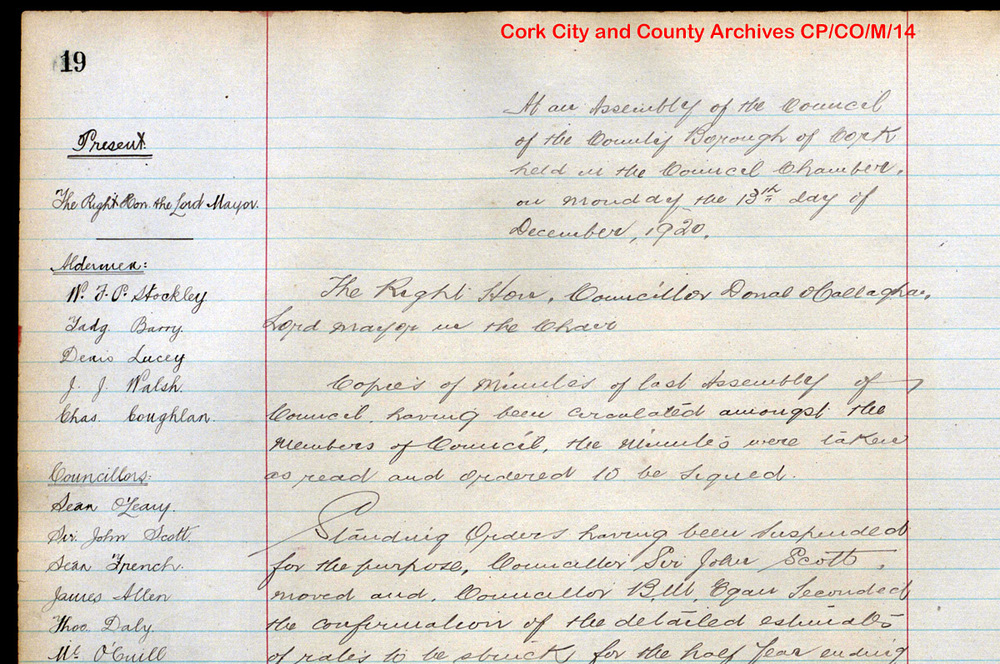 Cork City and County Archives CP/CO/M/14
19
Present
The Right Hon. the Lord Mayor.
Aldermen:
W. F. P. Stockley
Tadg. Barry.
Denis Lucey
J. J. Walsh.
Chas. Coughlan.
Councillors:
Sean O'Leary.
Sir. John Scott.
Sean French.
James Allen
Thos. Daly.
At an Assembly of the Council
of the County Borough of Cork
held in the Council Chamber,
on Monday the 13th day of
December, 1920.
The Right Hon. Councillor Donal O'Callaghan,
Lord Mayor in the Chair
Copies of Minutes of last Assembly of
Council, having been circulated amongst the
Members of Council, the Minutes were taken
as read and ordered to be signed.
Standing Orders having been suspended
for the purpose, Councillor Sir John Scott,
moved and, Councillor B.M. Egan seconded
the confirmation of the detailed estimates
of rates to be struck for the half year ending